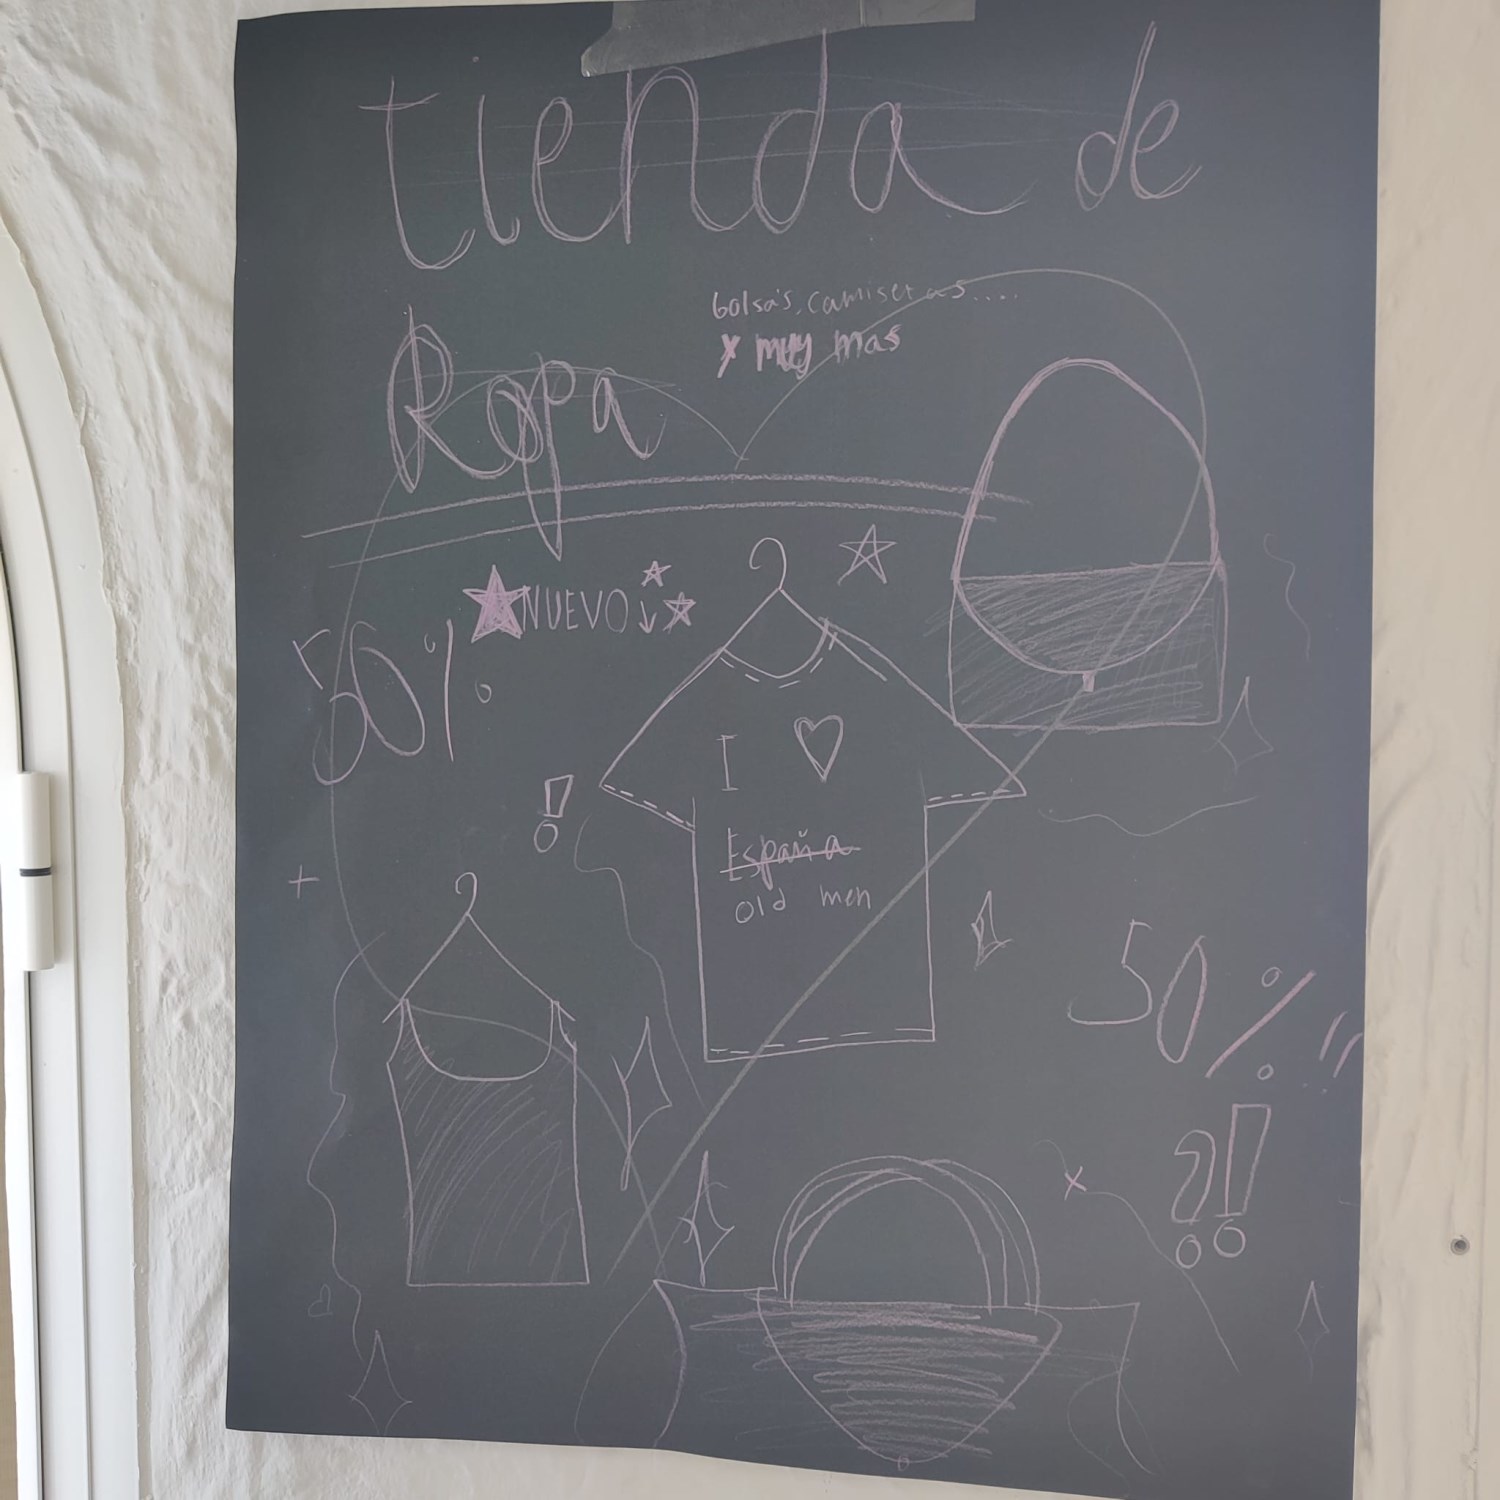 tienda de
Ropa
bolsa's, camisetas....
y muy mas
NUEVO
50%
I ♡
España
old men
!
50%!!
?!